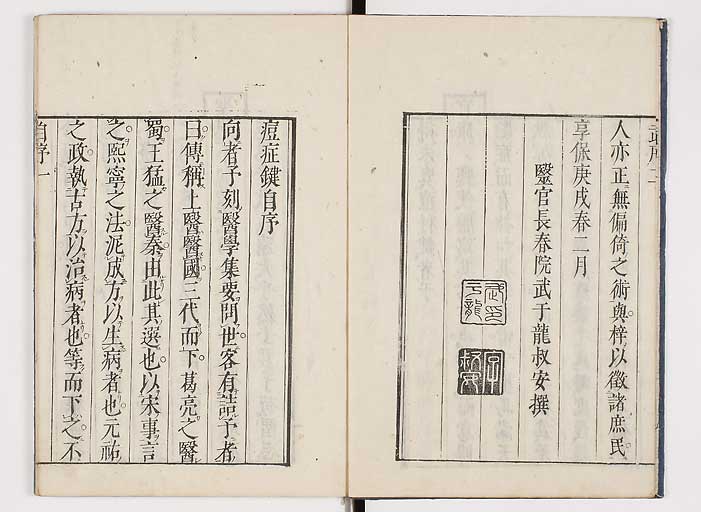 人亦正無偏倚之術與梓以徵諸庶民
享保庚戌春二月
毉官長春院武于龍叔安撰
痘症鍵自序
向者予刻醫學集要問世客有詰予者
曰傳稱上醫醫國三代而下葛亮之醫
蜀王猛之醫秦由此其選也以宋事言
之熙寧之法泥成方以生病者也元祐
之政執古方以治病者也等而下之不
自序一